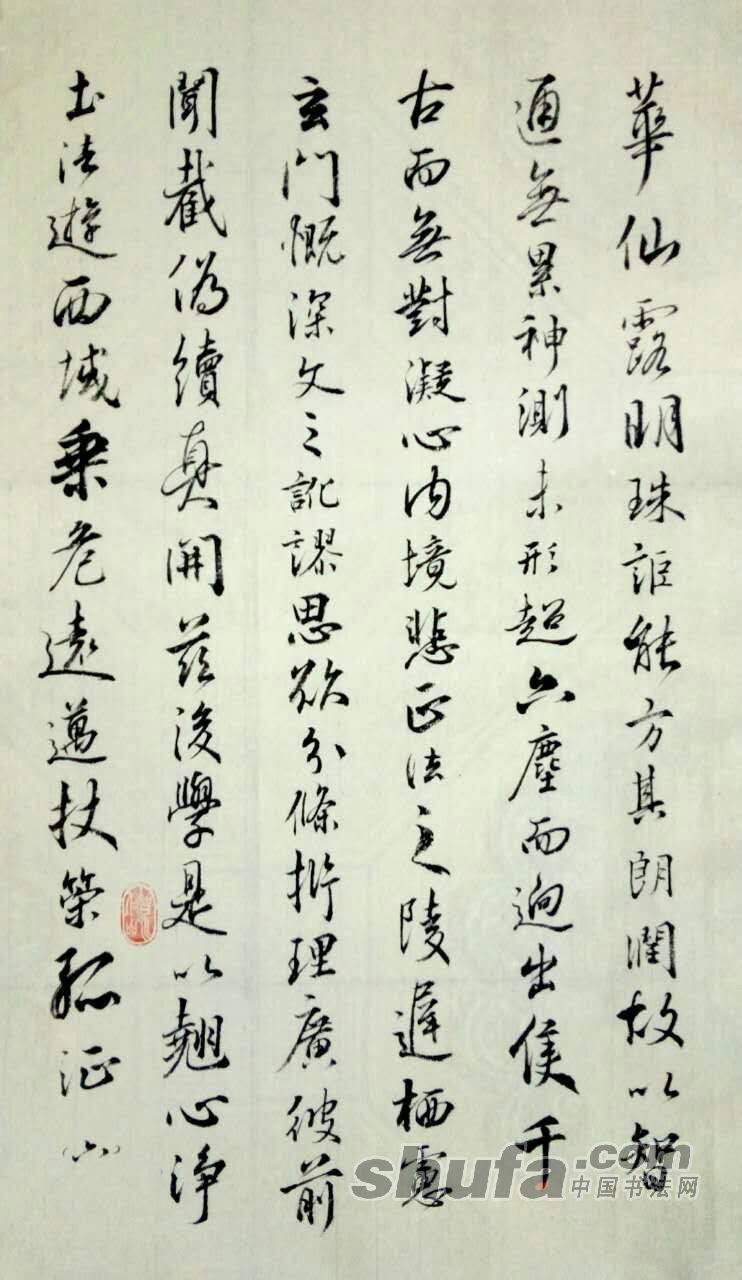 華仙露明珠詎能方其朗潤故以智
通無累神測未形超六塵而迥出隻千
古而無對凝心内境悲正法之陵遲栖慮
玄門慨深文之訛謬思欲分條析理廣彼前
聞截偽續真開茲後學是以翹心淨
土往遊西域乘危遠邁杖策孤征
shufa.com
中国书法网